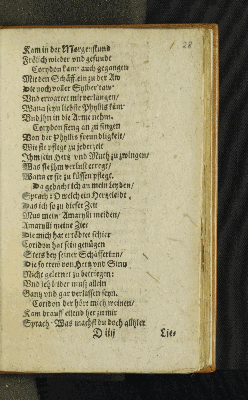 28
Kam in der Morgenstund
Frölich wieder und gesunde
Corydon kam auch gegangen
Mit den Schäff ein zu der Aw
Die noch voller Sylber taw
Und erwartet mit verlangen/
Wann seyn liebste Phyllis käm
Und ihn in die Arme nehm.
Corydon fieng an zu singen
Von der Phyllis freundligkeit/
Wie sie pflege zu jederzeit
Ihm sein Hertz und Muth zu zwingen/
Was sie ihm verlust erregt/
Wann er sie zu küssen pflegt.
Da gedacht ich an mein leyden/
Sprach: O welch ein Hertzeleidt/
Das ich so zu dieser Zeit
Mus mein Amarylli meiden/
Amarylli meine Zier
Die mich hat ertödtet schier
Coridon hat sein genügen
Stets bey seiner Schäfferinn/
Die so trew von Hertz und Sinn
Nicht gelernet zu betriegen:
Und ich leider muß allein
Gantz und gar verlassen seyn.
Coridon der hört mich weinen/
Kam drauff eilend her zu mir
Sprach: Was machst du doch allhier
D iiij
Lie-